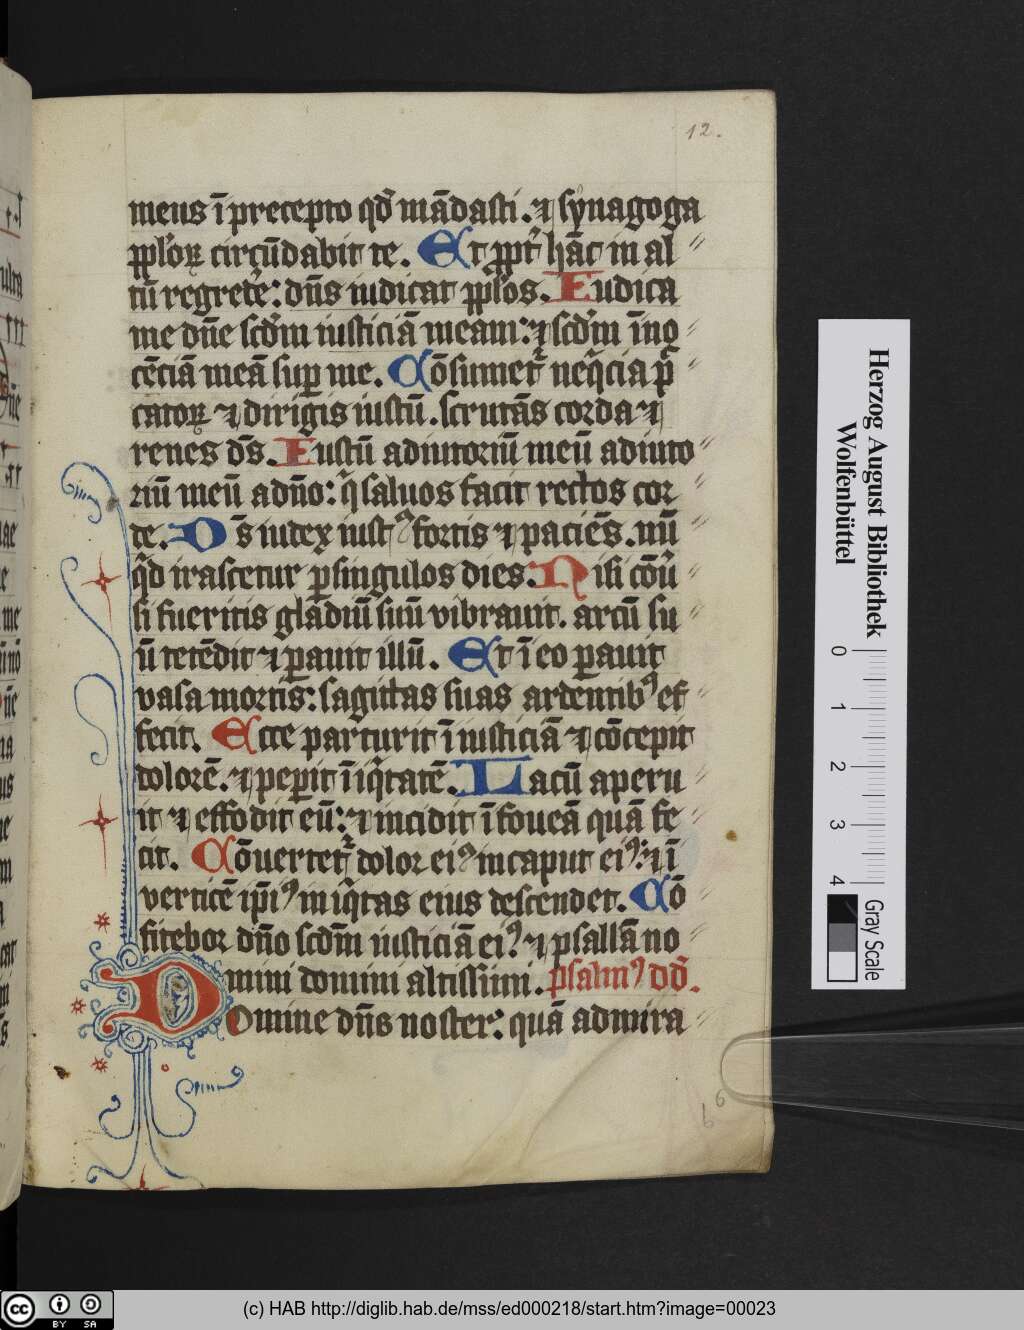 12.
meus ī precepto qd̄ mādasti. ⁊ synagoga
pplōꝝ circūdabit te. Et ppt̄ hāc in al〃
tū regret̄e: dn̄s iudicat pplōs. Iudica
me dn̄e scd̄m iusticiā meam: ⁊ scd̄m īno〃
cēciā meā suꝑ me. Cōsumet̄ neq̄cia p̄〃
catoꝝ ⁊ dirigis iustū. scrutās corda ⁊
renes ds̄. Iustū adiutoriū meū adiuto〃
riū meū adn̄o: q̄ saluos facit rectos cor〃
de. Ds̄ iudex iustꝰ fortis ⁊ paciēs. nū〃
q̄d irascetur ꝑ singulos dies. Nisi cōū〃
si fueritis gladiū suū vibrauit. arcū su〃
ū tetēdit ⁊ ꝑauit illū. Et ī eo ꝑauit
vasa mortis: sagittas suas ardentibꝰ ef〃
fecit. Ecce parturit ī iusticiā ⁊ cōcepit
dolorē. ⁊ peꝑit īiq̄tatē. Lacū aperu〃
it ⁊ effodit eū: ⁊ incidit ī foueā quā fe〃
cit. Cōuertet̄ dolor eiꝰ in caput eiꝰ: ⁊ ī〃
verticē ip̄iꝰ iniq̄tas eius descendet. Cō〃
fitebor dn̄o scd̄m iusticiā eiꝰ. ⁊ psallā no〃
mini domini altissimi. psalmꝰ dd̄.
DOmine dn̄s noster: quā admira〃
b 6
Herzog August Bibliothek
Wolfenbüttel
0 1 2 3 4
Gray Scale
cc BY SA
(c) HAB http://diglib.hab.de/mss/ed000218/start.htm?image=00023